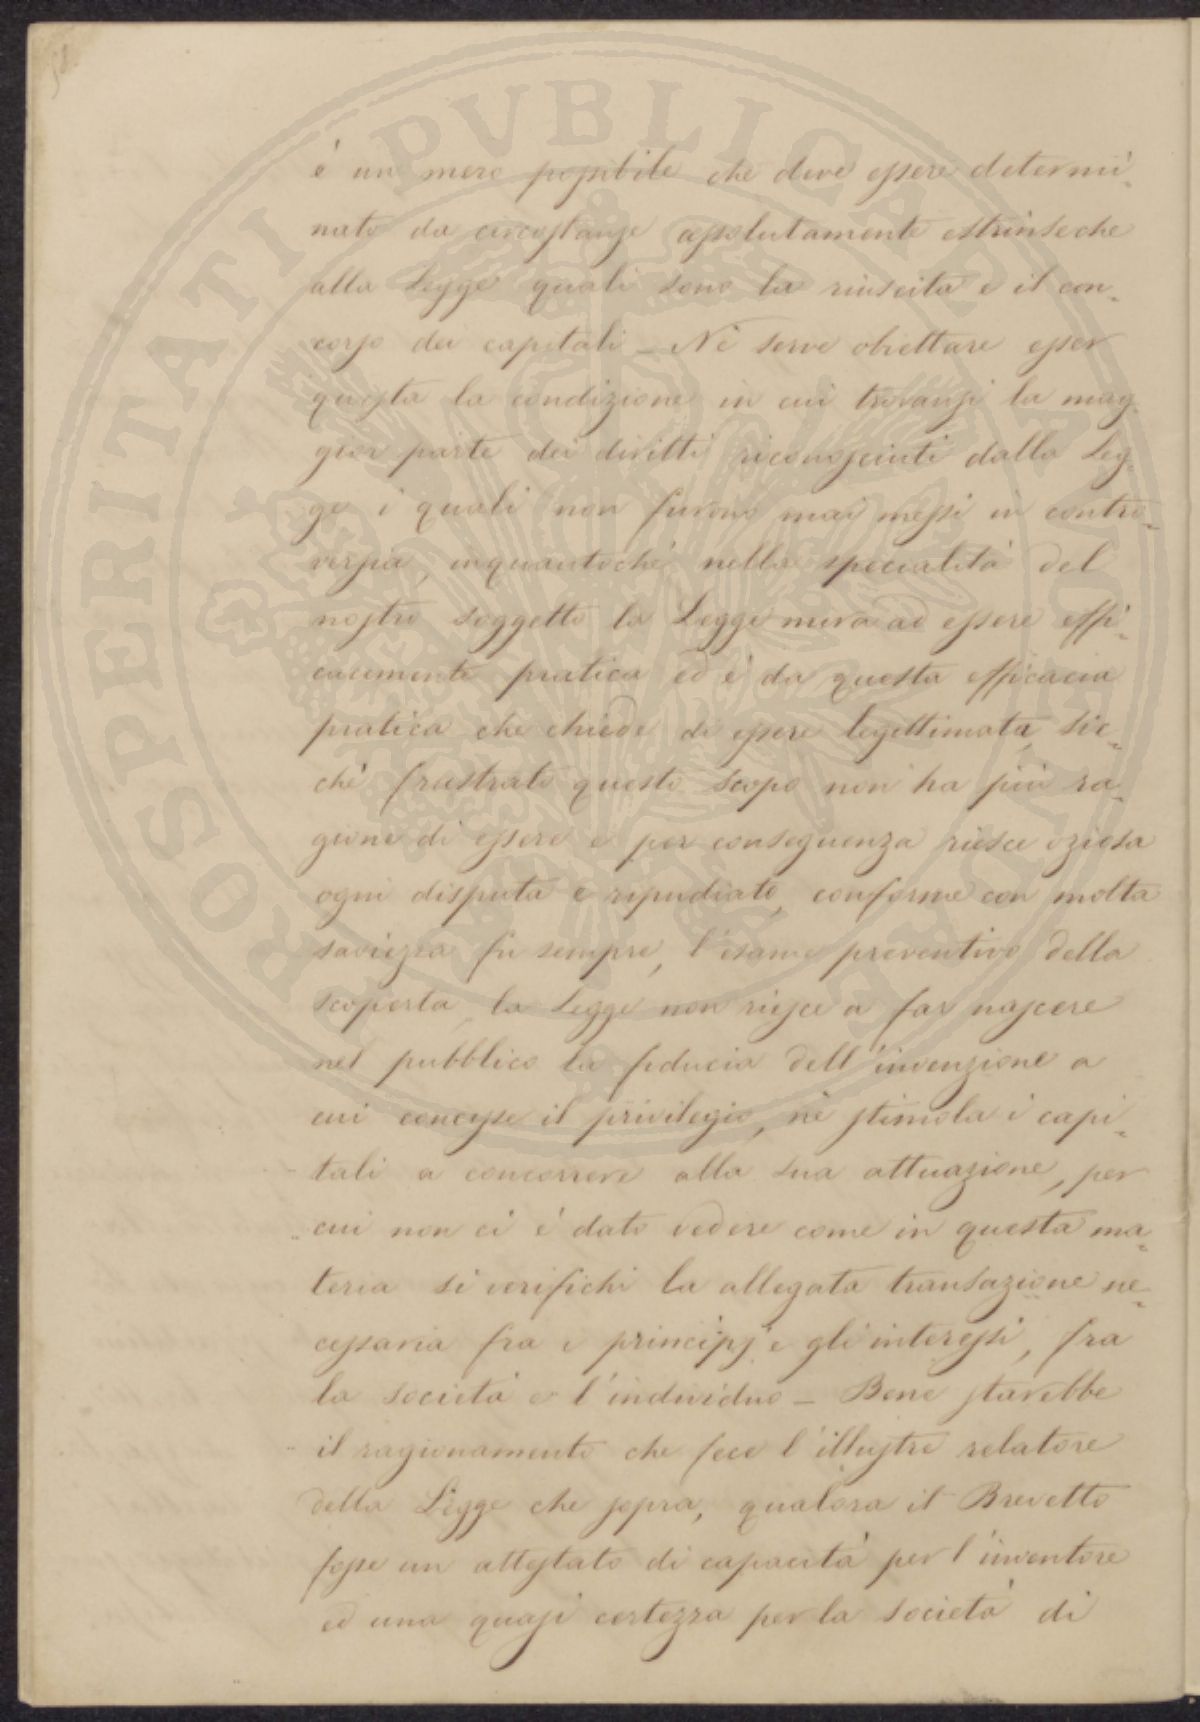 è un mero possibile che deve essere determi=
nato da circostanze assolutamente estrinseche
alla Legge quali sono la riuscita e il con=
corso dei capitali _ Nè serve obiettare esser
questa la condizione in cui trovansi la mag=
gior parte dei diritti riconosciuti dalla Leg=
ge i quali non furono mai messi in contro=
versia, inquantochè nella specialità del
nostro soggetto la Legge mira ad essere effi=
cacemente pratica ed è da questa efficacia
pratica che chiede di essere legittimata, sic=
chè frustrato questo scopo non ha più ra=
gione di essere e per conseguenza riesce oziosa
ogni disputa e ripudiato, conforme con molta
saviezza fu sempre, l'esame preventivo della
scoperta, la Legge non riesce a far nascere
nel pubblico la fiducia dell'invenzione a
cui concesse il privilegio, nè stimola i capi=
tali a concorrere alla sua attuazione, per
cui non ci è dato vedere come in questa ma=
teria si verifichi la allegata transazione ne=
cessaria fra i principj e gli interessi, fra
la società e l'individuo _ Bene starebbe
il ragionamento che fece l'illustre relatore
della Legge che sopra, qualora il Brevetto
fosse un attestato di capacità per l'inventore
ed una quasi certezza per la società di
PROSPERITATI PVBLICAE